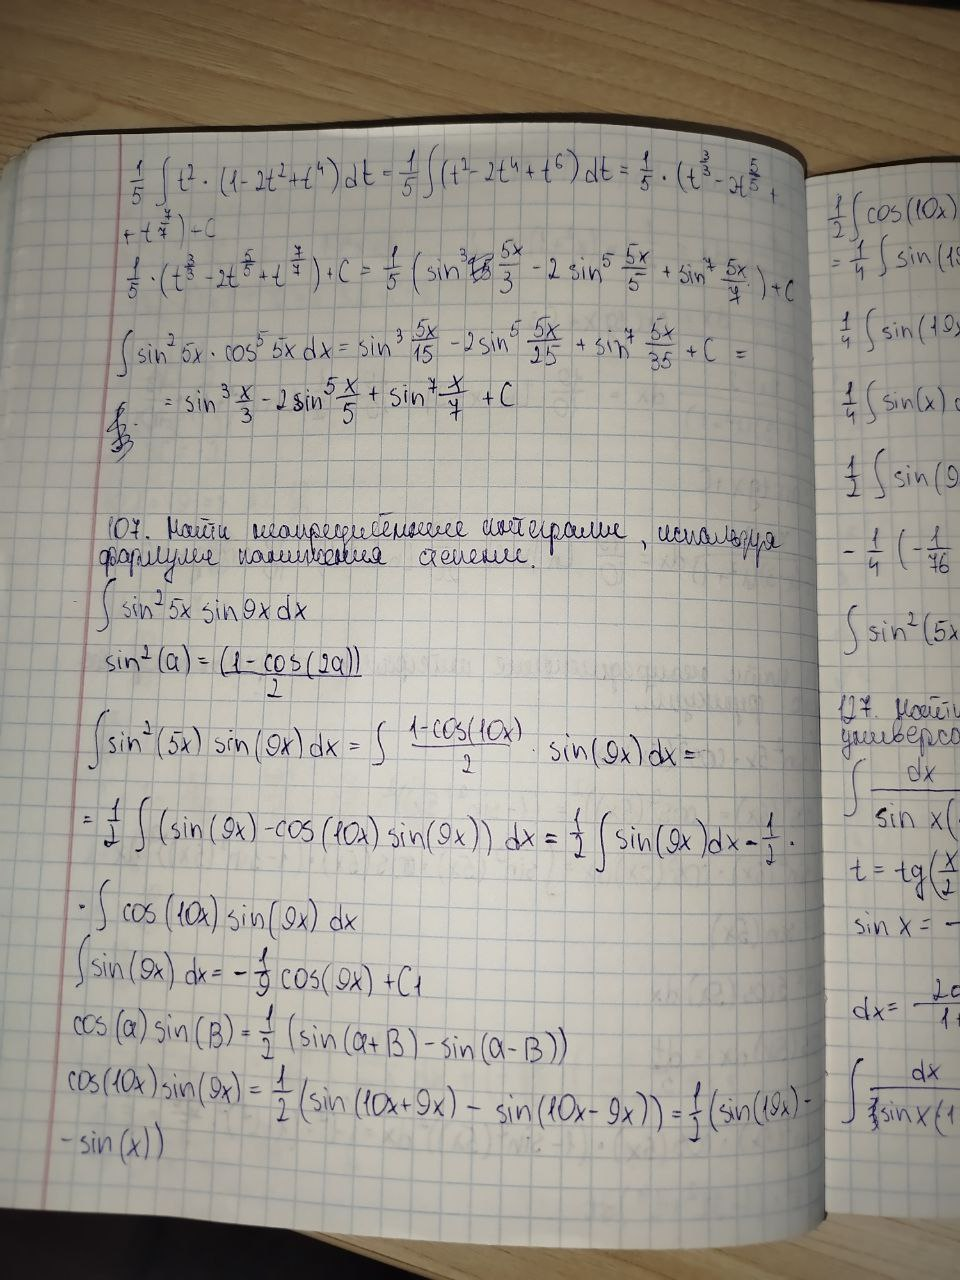 1/5 ∫ t² · (1-2t²+t⁴) dt = 1/5 ∫ (t²-2t⁴+t⁶) dt = 1/5 · (t^(3/3) - 2t^(5/5) +
+ t^(7/7)) + C
1/5 · (t^(3/3) - 2t^(5/5) + t^(7/7)) + C = 1/5 (sin³ 5x/3 - 2 sin⁵ 5x/5 + sin⁷ 5x/7) + C
∫ sin² 5x · cos⁵ 5x dx = sin³ 5x/15 - 2sin⁵ 5x/25 + sin⁷ 5x/35 + C =
= sin³ x/3 - 2sin⁵ x/5 + sin⁷ x/7 + C
107. Найти неопределённые интегралы, используя
формулы понижения степени.
∫ sin² 5x sin 9x dx
sin² (a) = (1-cos(2a))/2
∫ sin² (5x) sin (9x) dx = ∫ (1-cos(10x))/2 · sin (9x) dx =
= 1/2 ∫ (sin(9x) - cos(10x) sin(9x)) dx = 1/2 ∫ sin(9x) dx - 1/2 ·
· ∫ cos (10x) sin(9x) dx
∫ sin (9x) dx = - 1/9 cos(9x) + C1
cos(a) sin(B) = 1/2 (sin(a+B) - sin(a-B))
cos(10x) sin(9x) = 1/2 (sin (10x+9x) - sin(10x-9x)) = 1/2 (sin(19x) -
- sin(x))
1/2 ∫ cos(10x)
= 1/4 ∫ sin(19
1/4 ∫ sin(19x
1/4 ∫ sin(x)
1/2 ∫ sin(9
- 1/4 (- 1/76
∫ sin² (5x
127. Найти
универса
∫ dx / sin x(
t = tg(x/2
sin x = -
dx = 2d / 1+
∫ dx / sin x(1